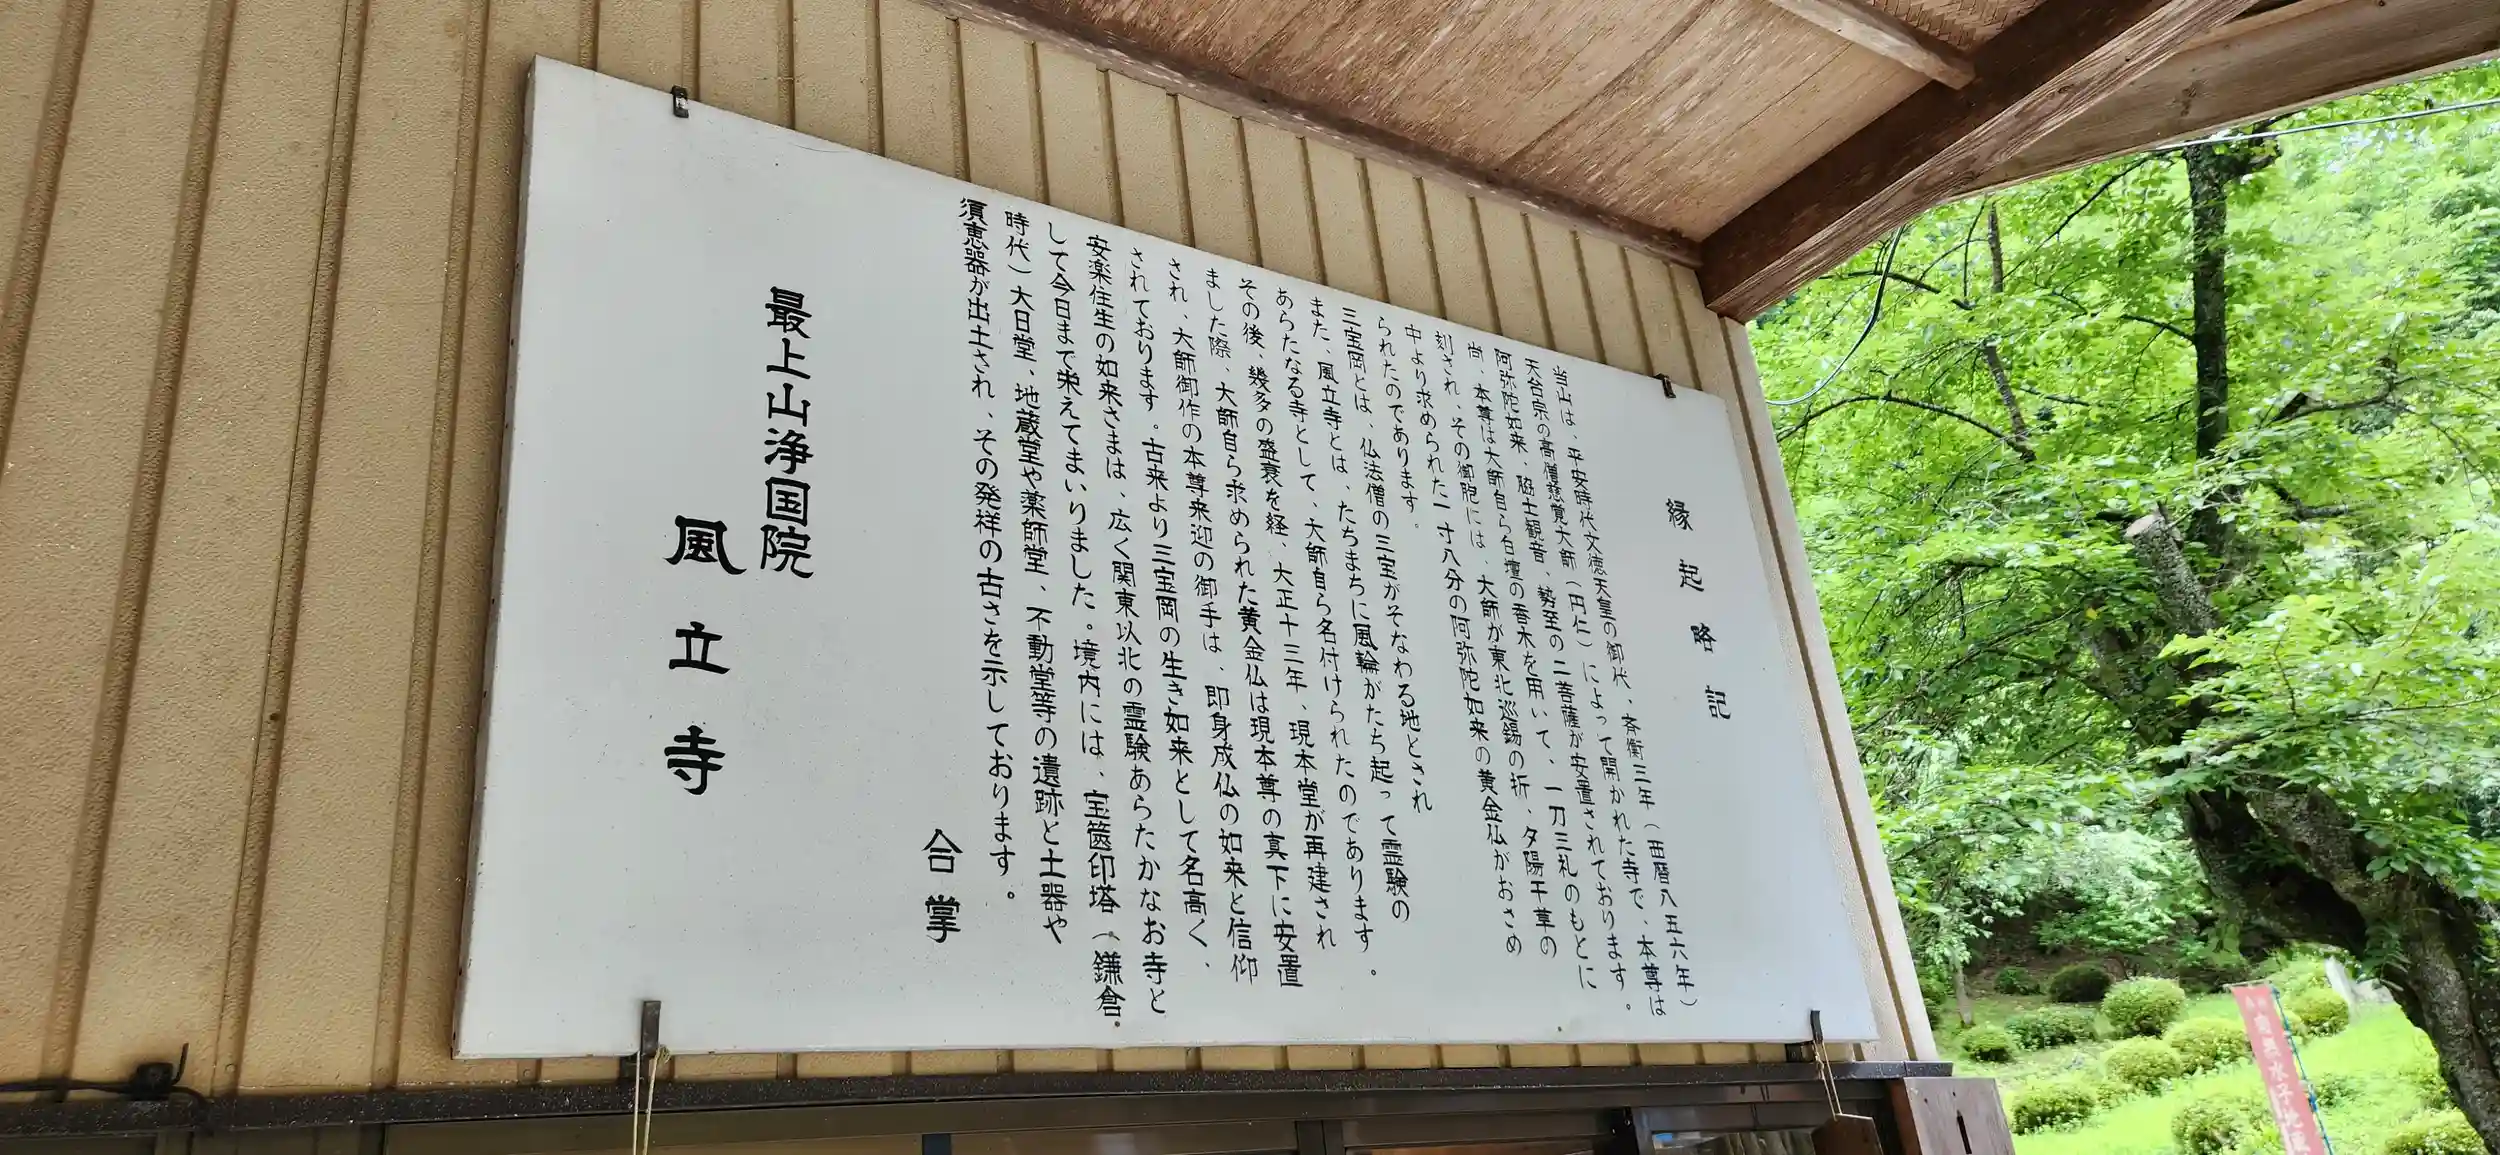 縁起略記
当山は、平安時代文徳天皇の御代、斉衡三年（西暦八五六年）
天台宗の高僧慈覚大師（円仁）によって開かれた寺で、本尊は
阿弥陀如来、脇士観音、勢至の二菩薩が安置されております。
尚、本尊は大師自ら白壇の香木を用いて、一刀三礼のもとに
刻され、その御胎には、大師が東北巡錫の折、夕陽干草の
中より求められた一寸八分の阿弥陀如来の黄金仏がおさめ
られたのであります。
三宝岡とは、仏法僧の三宝がそなわる地とされ
また、風立寺とは、たちまちに風輪がたち起って霊験の
あらたなる寺として、大師自ら名付けられたのであります。
その後、幾多の盛衰を経、大正十三年、現本堂が再建され
ました際、大師自ら求められた黄金仏は現本尊の真下に安置
され、大師御作の本尊来迎の御手は、即身成仏の如来と信仰
されております。古来より三宝岡の生き如来として名高く、
安楽住生の如来さまは、広く関東以北の霊験あらたかなお寺と
して今日まで栄えてまいりました。境内には、宝篋印塔（鎌倉
時代）大日堂、地蔵堂や薬師堂、不動堂等の遺跡と土器や
須恵器が出土され、その発祥の古さを示しております。
合掌
最上山浄国院
風立寺
水子地